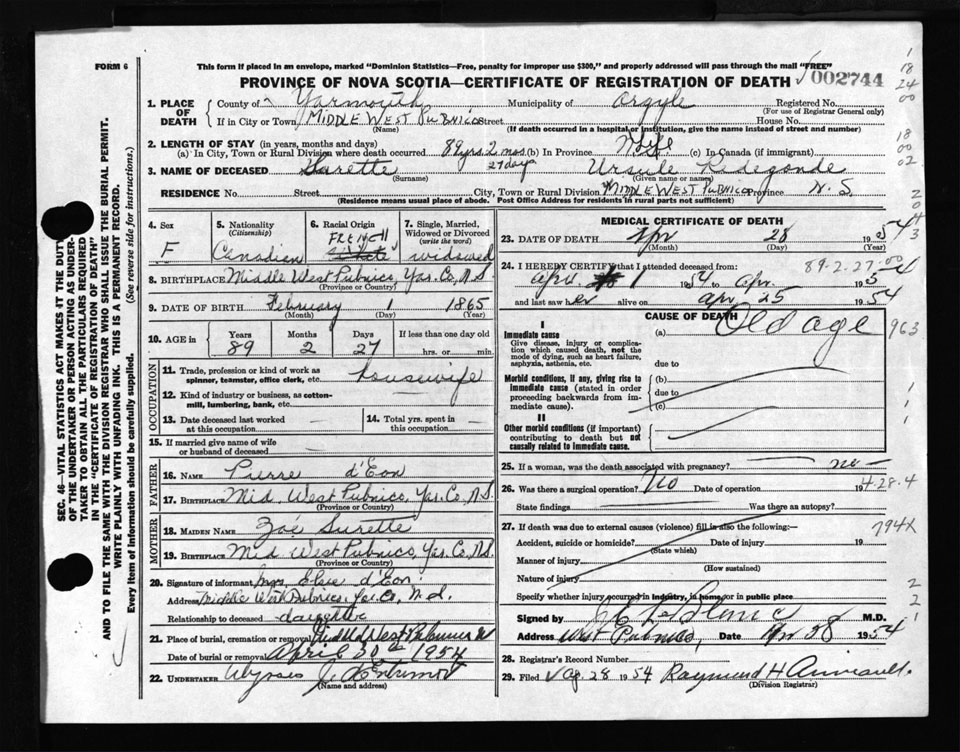 FORM 6
This form if placed in an envelope, marked "Dominion Statistics—Free, penalty for improper use $300," and properly addressed will pass through the mail "FREE"
PROVINCE OF NOVA SCOTIA—CERTIFICATE OF REGISTRATION OF DEATH
002744
1. PLACE OF DEATH
County of Yarmouth Municipality of Argyle Registered No.
(For use of Registrar General only)
If in City or Town MIDDLE WEST PUBNICO Street House No.
(Name) (If death occurred in a hospital or institution, give the name instead of street and number)
2. LENGTH OF STAY (in years, months and days)
(a) In City, Town or Rural Division where death occurred 89 yrs. 2 mos. 27 days (b) In Province (c) In Canada (if immigrant)
3. NAME OF DECEASED Surette Ursule Radegonde
(Surname) (Given name or names)
RESIDENCE No. Street City, Town or Rural Division MIDDLE WEST PUBNICO Province N. S.
(Residence means usual place of abode. Post Office Address for residents in rural parts not sufficient)
4. Sex
F
5. Nationality (Citizenship)
Canadian
6. Racial Origin
FRENCH
7. Single, Married, Widowed or Divorced (write the word)
widowed
8. BIRTHPLACE Middle West Pubnico, Yar. Co, N.S.
(Province or Country)
9. DATE OF BIRTH February 1 1865
(Month) (Day) (Year)
10. AGE in
Years Months Days If less than one day old
89 2 27 hrs. or min.
OCCUPATION
11. Trade, profession or kind of work as spinner, teamster, office clerk, etc. housewife
12. Kind of industry or business, as cotton-mill, lumbering, bank, etc.
13. Date deceased last worked at this occupation
14. Total yrs. spent in this occupation
15. If married give name of wife or husband of deceased
FATHER
16. NAME Pierre d'Eon
17. BIRTHPLACE Mid. West Pubnico, Yar. Co, N.S.
(Province or Country)
MOTHER
18. MAIDEN NAME Zoé Surette
19. BIRTHPLACE Mid West Pubnico, Yar. Co, N.S.
(Province or Country)
20. Signature of informant Mrs. Elsie d'Eon
Address Middle West Pubnico, Yar. Co, N.S.
Relationship to deceased daughter
21. Place of burial, cremation or removal Middle West Pubnico
Date of burial or removal April 30th 1954
22. UNDERTAKER Ulysses J. d'Entremont
(Name and address)
MEDICAL CERTIFICATE OF DEATH
23. DATE OF DEATH Apr 28 1954
(Month) (Day) (Year)
24. I HEREBY CERTIFY that I attended deceased from:
89-2-27-00
Apr. 1 1954 to Apr. 195
and last saw her alive on Apr 25 1954
CAUSE OF DEATH
I
Immediate cause
Give disease, injury or complication which caused death, not the mode of dying, such as heart failure, asphyxia, asthenia, etc.
(a) Old age 963
due to
Morbid conditions, if any, giving rise to immediate cause (stated in order proceeding backwards from immediate cause).
(b)
due to
(c)
II
Other morbid conditions (if important) contributing to death but not causally related to immediate cause.
25. If a woman, was the death associated with pregnancy? no
26. Was there a surgical operation? No Date of operation 19
4-28-4
State findings Was there an autopsy?
27. If death was due to external causes (violence) fill in also the following:—
794X
Accident, suicide or homicide? Date of injury 19
(State which)
Manner of injury
(How sustained)
Nature of injury
Specify whether injury occurred in industry, in home, or in public place
Signed by LeBlanc M.D.
Address West Pubnico, Date Apr 28 1954
28. Registrar's Record Number
29. Filed 28 1954 Raymond H Amirault
(Division Registrar)
SEC. 46—VITAL STATISTICS ACT MAKES IT THE DUTY OF THE UNDERTAKER OR PERSON ACTING AS UNDERTAKER TO OBTAIN ALL THE PARTICULARS REQUIRED IN THE "CERTIFICATE OF REGISTRATION OF DEATH" AND TO FILE THE SAME WITH THE DIVISION REGISTRAR WHO SHALL ISSUE THE BURIAL PERMIT.
WRITE PLAINLY WITH UNFADING INK. THIS IS A PERMANENT RECORD.
Every item of information should be carefully supplied. (See reverse side for instructions.)